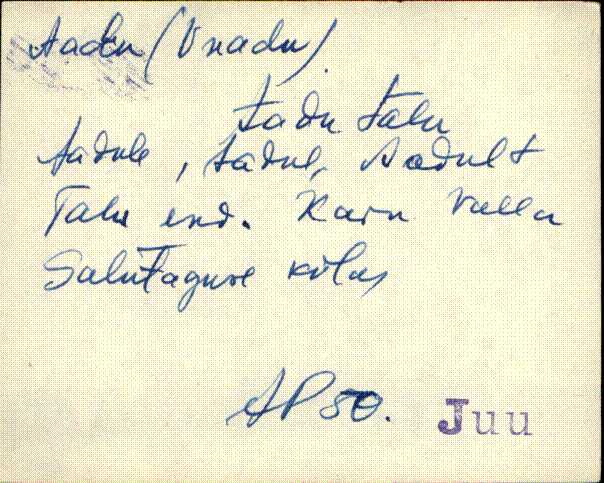 Aadu (Unadu).
Aadu talu
Aadule, Aadul, Aadult
Talu end. Kaiu valla
Salutaguse külas
AP 50. Juu